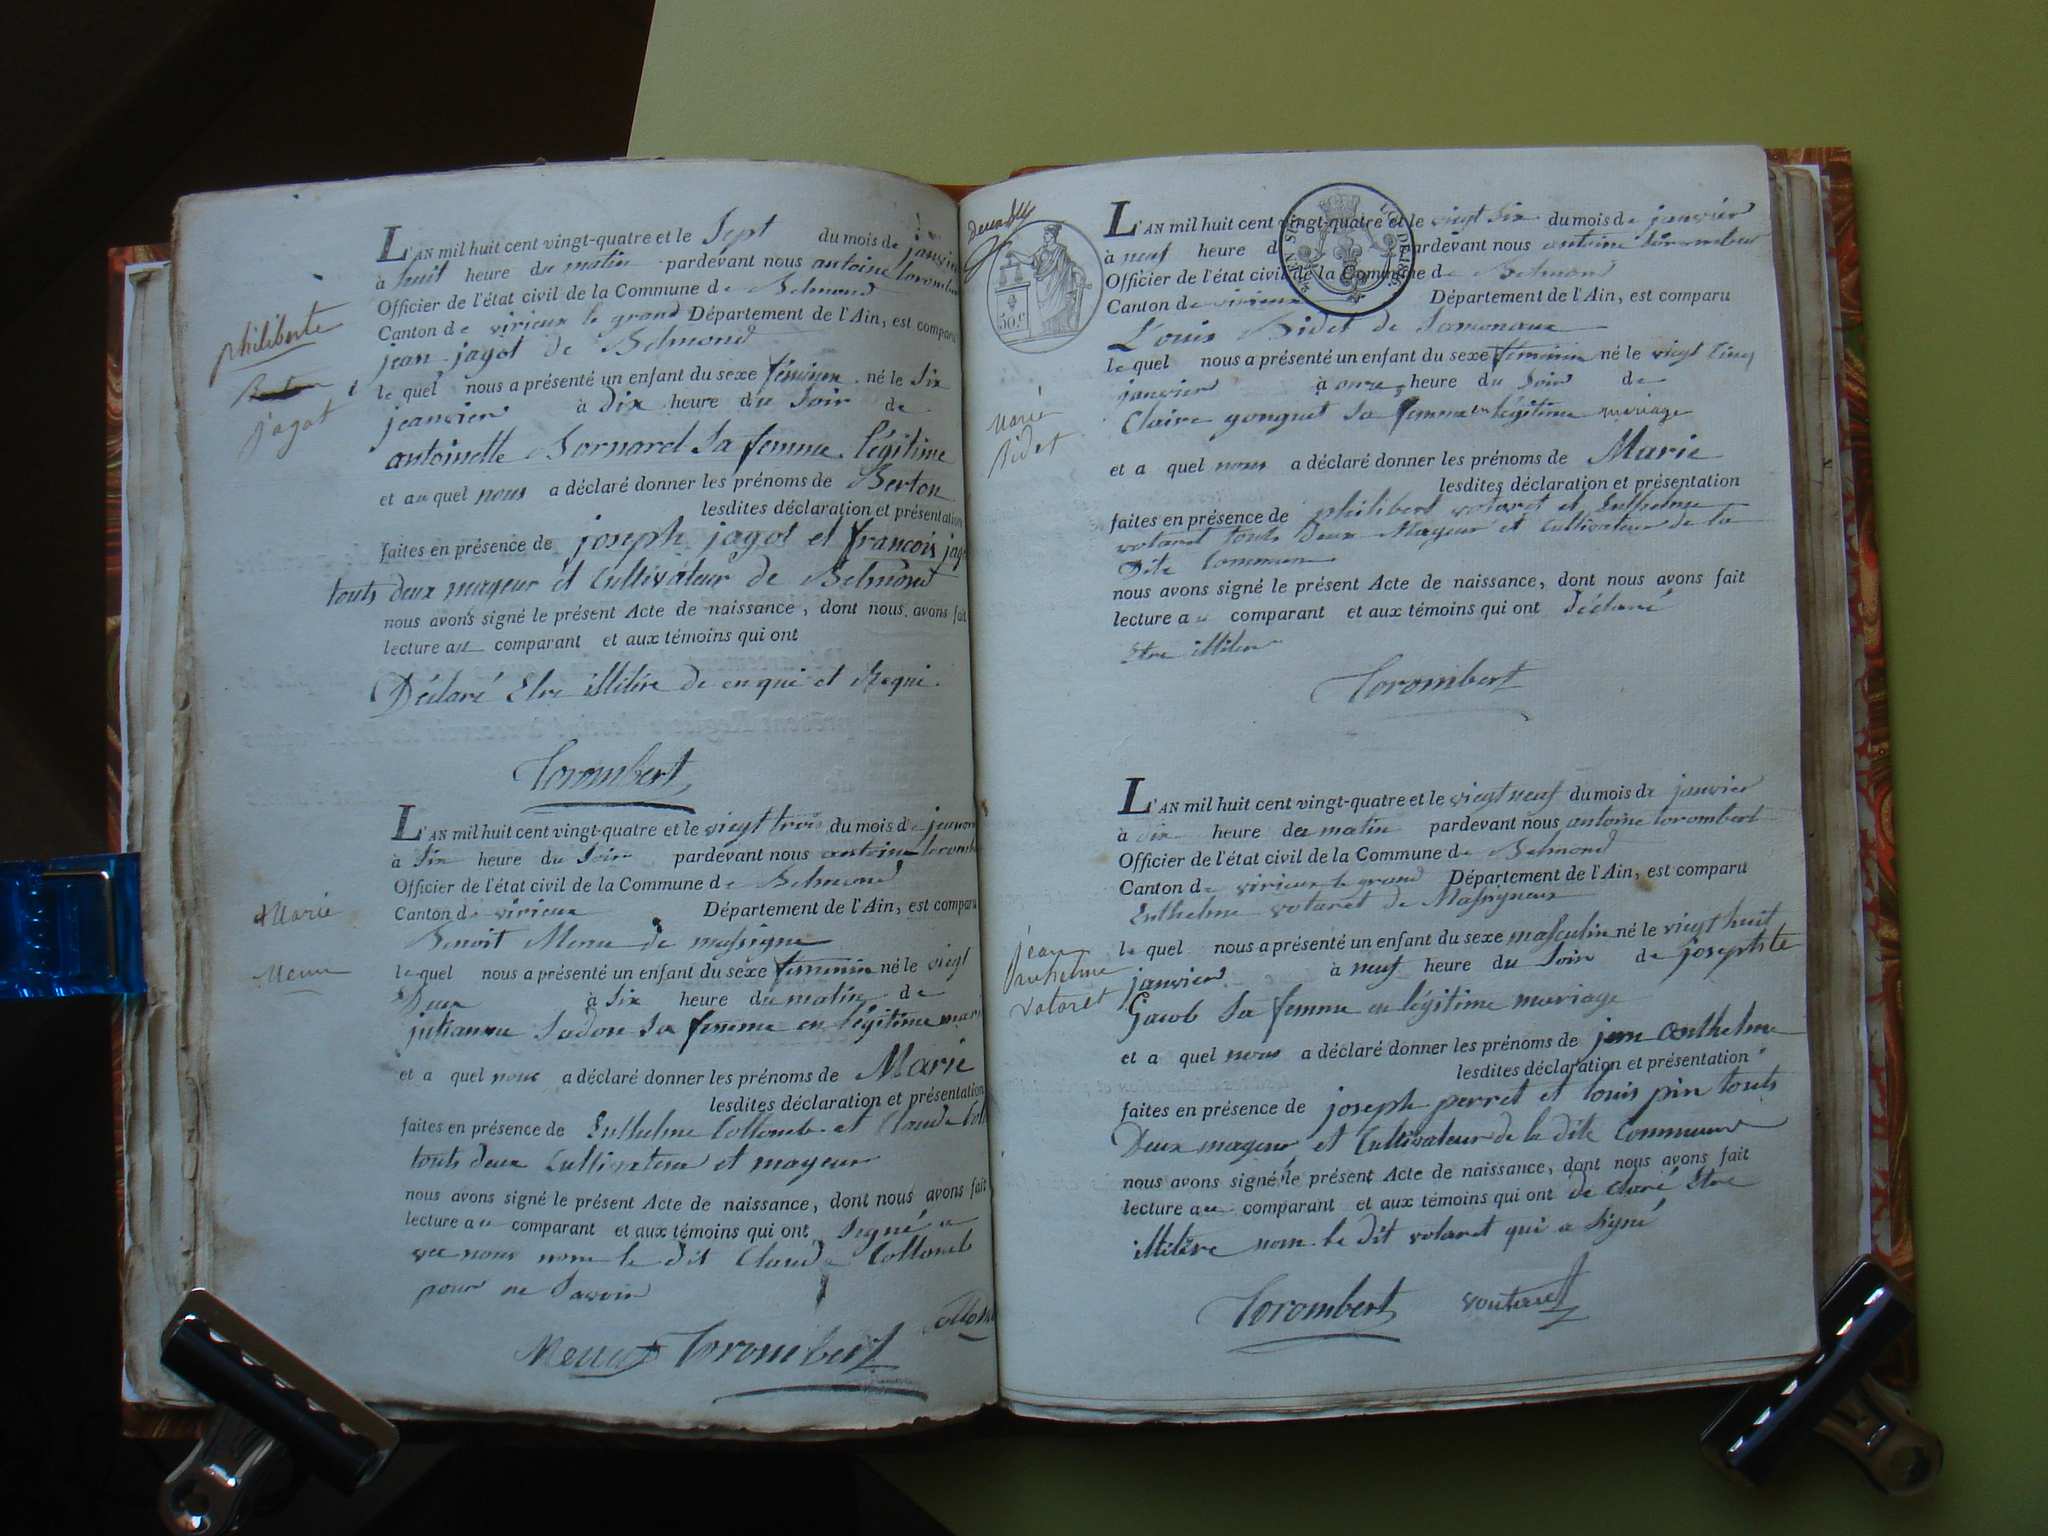 L'AN mil huit cent vingt-quatre et le Sept du mois de janvier
à huit heure du matin pardevant nous antoine torombert
Officier de l'état civil de la Commune de Belmond
Canton de virieux le grand Département de l'Ain, est comparu
jean jagot de Belmond
le quel nous a présenté un enfant du sexe féminin né le Six
jeanvier à Dix heure du Soir de
antoinette Bornarel Sa femme légitime
et au quel nous a déclaré donner les prénoms de Berton
lesdites déclaration et présentation
faites en présence de joseph jagot et françois jag
touts deux mayeur et Cultivateur de Belmond
nous avons signé le présent Acte de naissance, dont nous avons fait
lecture au comparant et aux témoins qui ont
Déclaré Etre illitére de en qui et Reqni
Torombert
philiberte
jagot
L'AN mil huit cent vingt-quatre et le viegt trois du mois de
à Six heure du Soir pardevant nous antoine
Officier de l'état civil de la Commune de Belmond
Canton de virieux Département de l'Ain, est comparu
Benoit Menu de massigne
le quel nous a présenté un enfant du sexe feminin né le viegt
Deux à Six heure du matin de
julianne Sadon Sa femme en légitime mari
et a quel nous a déclaré donner les prénoms de Marie
lesdites déclaration et présentation
faites en présence de Enthelme Collomb et Claude Coll
touts deux Cultivateur et mayeur
nous avons signé le présent Acte de naissance, dont nous avons fait
lecture au comparant et aux témoins qui ont Segné a
vec nous nom le dit Claude Collomb
pour ne Savoir
Menu Torombert
Marie
Menu
50 c.
L'AN mil huit cent vingt-quatre et le viegt Six du mois de janvier
à neuf heure d pardevant nous antoine torombert
Officier de l'état civil de la Commune de Belmond
Canton de virieux Département de l'Ain, est comparu
Louis Bidet de Samonaux
le quel nous a présenté un enfant du sexe feminin né le viegt Cinq
janvier à onze heure du Soir de
Claire gonguet Sa femme en légitime mariage
et a quel nous a déclaré donner les prénoms de Marie
lesdites déclaration et présentation
faites en présence de philibert votaret et Enthelme
votaret touts Deux Mayeur et Cultivateur de la
Dite Commune
nous avons signé le présent Acte de naissance, dont nous avons fait
lecture au comparant et aux témoins qui ont déclaré
Etre illitere
Torombert
Marie
Bidet
L'AN mil huit cent vingt-quatre et le viegt neuf du mois de janvier
à dix heure du matin pardevant nous antoine torombert
Officier de l'état civil de la Commune de Belmond
Canton de virieux le grand Département de l'Ain, est comparu
Enthelme votaret de Massignieux
le quel nous a présenté un enfant du sexe masculin né le viegt huit
janvier à neuf heure du Soir de josephte
Gacob Sa femme en légitime mariage
et a quel nous a déclaré donner les prénoms de jean anthelme
lesdites déclaration et présentation
faites en présence de joseph perret et louis pin touts
Deux mayeur et Cultivateur de la dite Commune
nous avons signé le présent Acte de naissance, dont nous avons fait
lecture au comparant et aux témoins qui ont de claré Etre
illitére nom le dit votaret qui a Signé
Torombert voutaret
jean
votaret